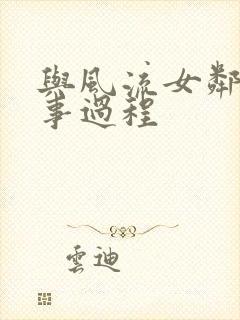 與風流女鄰
事過程
雲迪